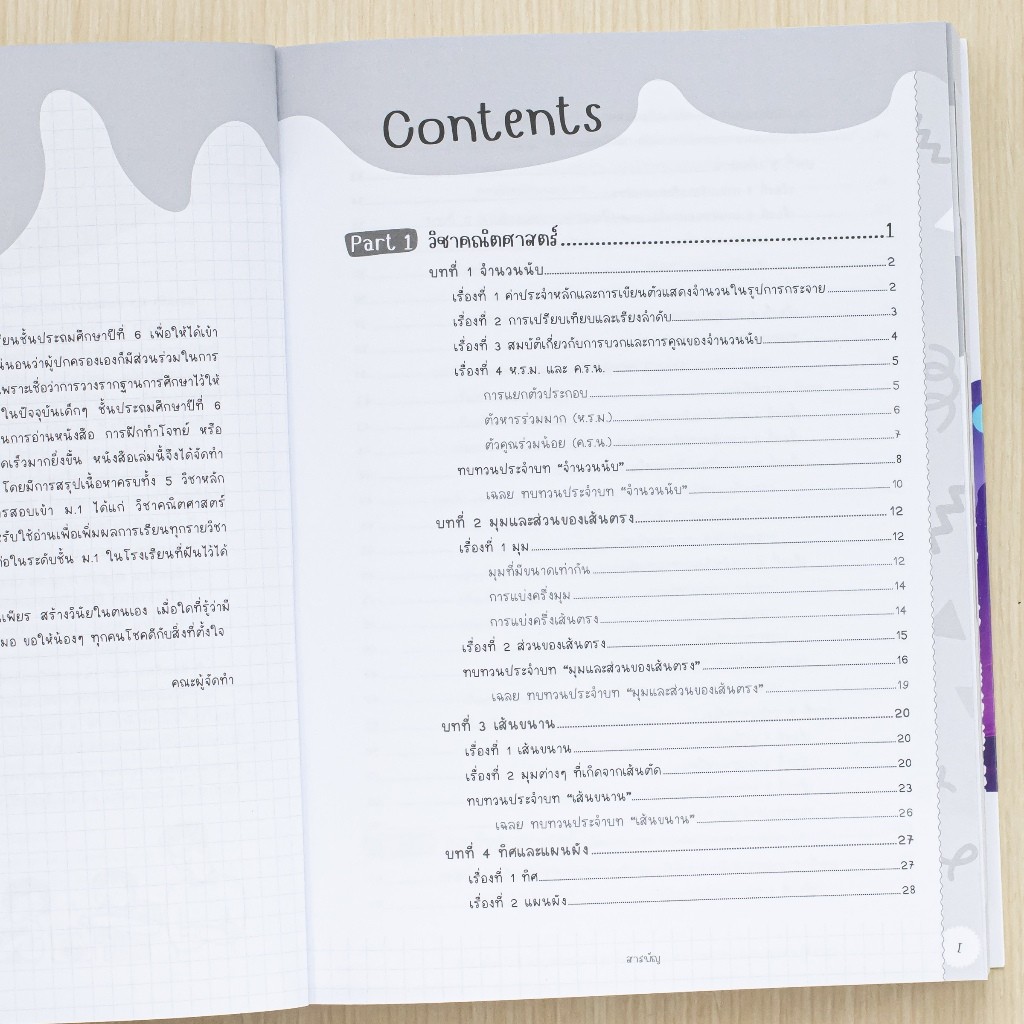 รียนชั้นประถมศึกษาปีที่ 6 เพื่อให้ได้เข้า
น่นอนว่าผู้ปกครองเองก็มีส่วนร่วมในการ
เพราะเชื่อว่าการวางรากฐานการศึกษาไว้ให้
ในปัจจุบันเด็กๆ ชั้นประถมศึกษาปีที่ 6
นการอ่านหนังสือ การฝึกทำโจทย์ หรือ
ดเร็วมากยิ่งขึ้น หนังสือเล่มนี้จึงได้จัดทำ
โดยมีการสรุปเนื้อหาครบทั้ง 5 วิชาหลัก
รสอบเข้า ม.1 ได้แก่ วิชาคณิตศาสตร์
รับใช้อ่านเพื่อเพิ่มผลการเรียนทุกรายวิชา
่อในระดับชั้น ม.1 ในโรงเรียนที่ฝันไว้ได้
เพียร สร้างวินัยในตนเอง เมื่อใดที่รู้ว่ามี
มอ ขอให้น้องๆ ทุกคนโชคดีกับสิ่งที่ตั้งใจ
คณะผู้จัดทำ
Contents
Part 1 วิชาคณิตศาสตร์ 1
บทที่ 1 จำนวนนับ 2
เรื่องที่ 1 ค่าประจำหลักและการเขียนตัวแสดงจำนวนในรูปการกระจาย 2
เรื่องที่ 2 การเปรียบเทียบและเรียงลำดับ 3
เรื่องที่ 3 สมบัติเกี่ยวกับการบวกและการคูณของจำนวนนับ 4
เรื่องที่ 4 ห.ร.ม. และ ค.ร.น. 5
การแยกตัวประกอบ 5
ตัวหารร่วมมาก (ห.ร.ม.) 6
ตัวคูณร่วมน้อย (ค.ร.น.) 7
ทบทวนประจำบท “จำนวนนับ” 8
เฉลย ทบทวนประจำบท “จำนวนนับ” 10
บทที่ 2 มุมและส่วนของเส้นตรง 12
เรื่องที่ 1 มุม 12
มุมที่มีขนาดเท่ากัน 12
การแบ่งครึ่งมุม 14
การแบ่งครึ่งเส้นตรง 14
เรื่องที่ 2 ส่วนของเส้นตรง 15
ทบทวนประจำบท “มุมและส่วนของเส้นตรง” 16
เฉลย ทบทวนประจำบท “มุมและส่วนของเส้นตรง” 19
บทที่ 3 เส้นขนาน 20
เรื่องที่ 1 เส้นขนาน 20
เรื่องที่ 2 มุมต่างๆ ที่เกิดจากเส้นตัด 20
ทบทวนประจำบท “เส้นขนาน” 23
เฉลย ทบทวนประจำบท “เส้นขนาน” 26
บทที่ 4 ทิศและแผนผัง 27
เรื่องที่ 1 ทิศ 27
เรื่องที่ 2 แผนผัง 28
สารบัญ
I